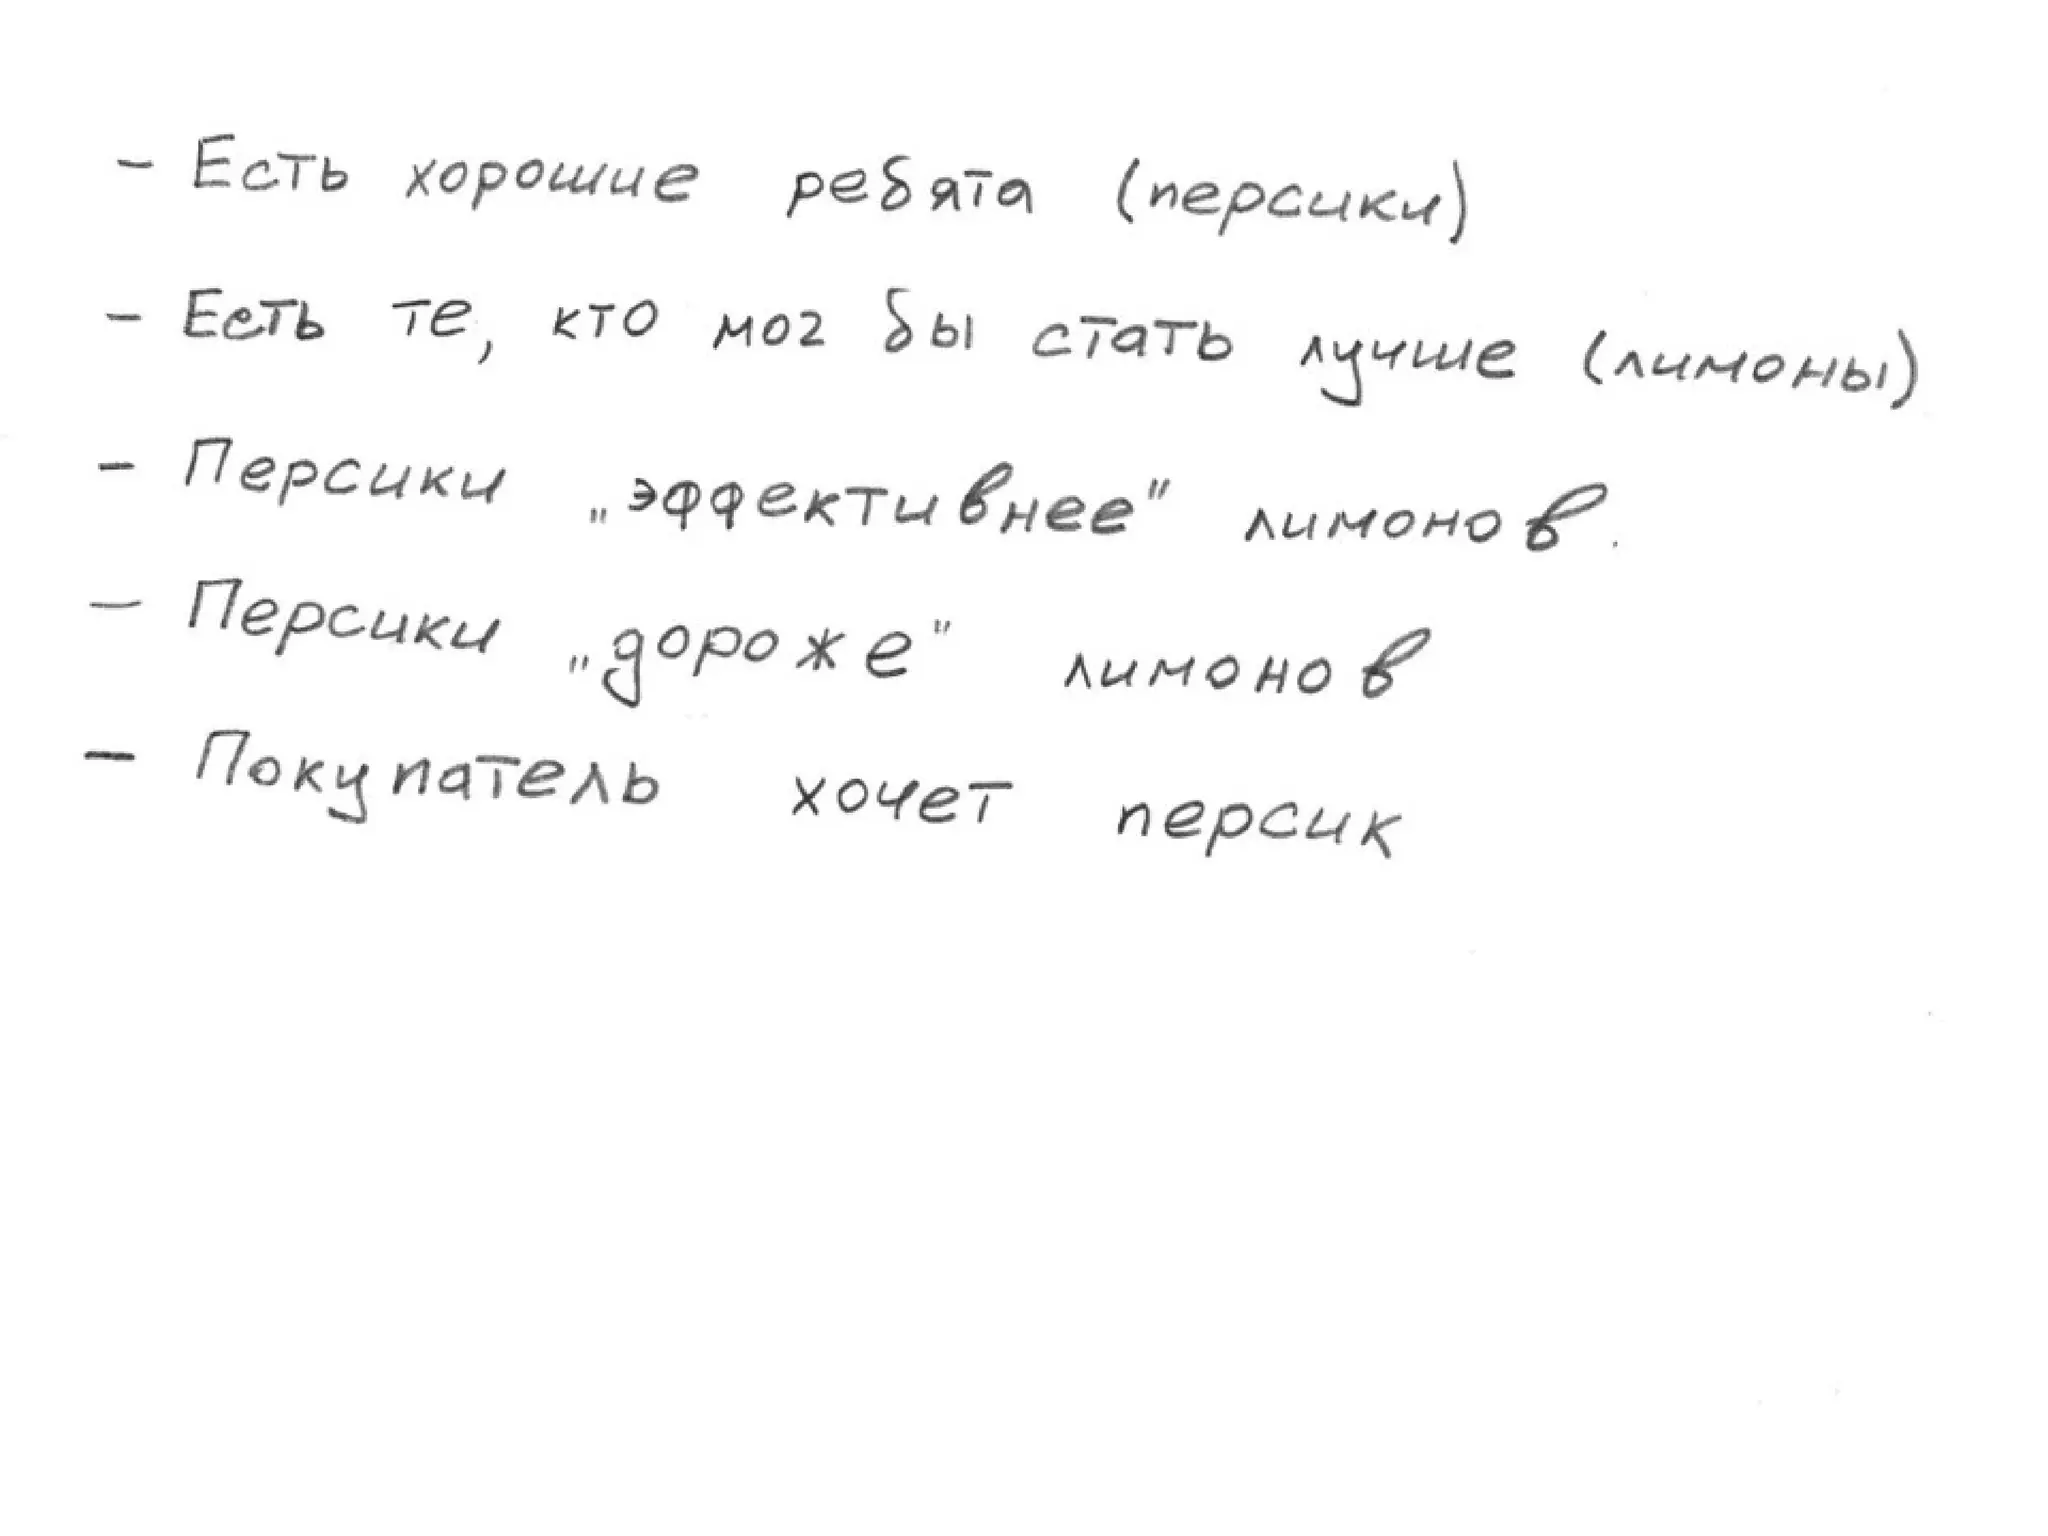 - Есть хорошие ребята (персики)
- Есть те, кто мог бы стать лучше (лимоны)
- Персики „эффективнее" лимонов.
- Персики „дороже" лимонов
- Покупатель хочет персик